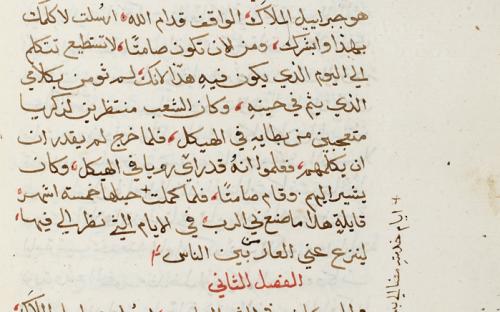 هو جبراييل الملاك الواقف قدام الله، ارسلت لاكلمك
بهذا وابشرك، ومن الان تكون صامتا، لا تستطيع تتكلم
الي اليوم الذي يكون فيه هذا، لانك لم تومن بكلامي
الذي يتم في حينه، وكان الشعب منتظرين لزكريا
متعجبين من بطايه في الهيكل، فلما خرج لم يقدر ان
ان يكلمهم، فعلموا انه قد راي رويا في الهيكل، وكان
يشير اليهم، وقام صامتا، فلما كملت + حبلها خمسة اشهر
قايلة هذا ما صنع بي الرب، في الايام التي نظر الي فيها،
لينزع عني العار من بين الناس
الفصل الثاني
+ ايام خدمته مضا الي بيته